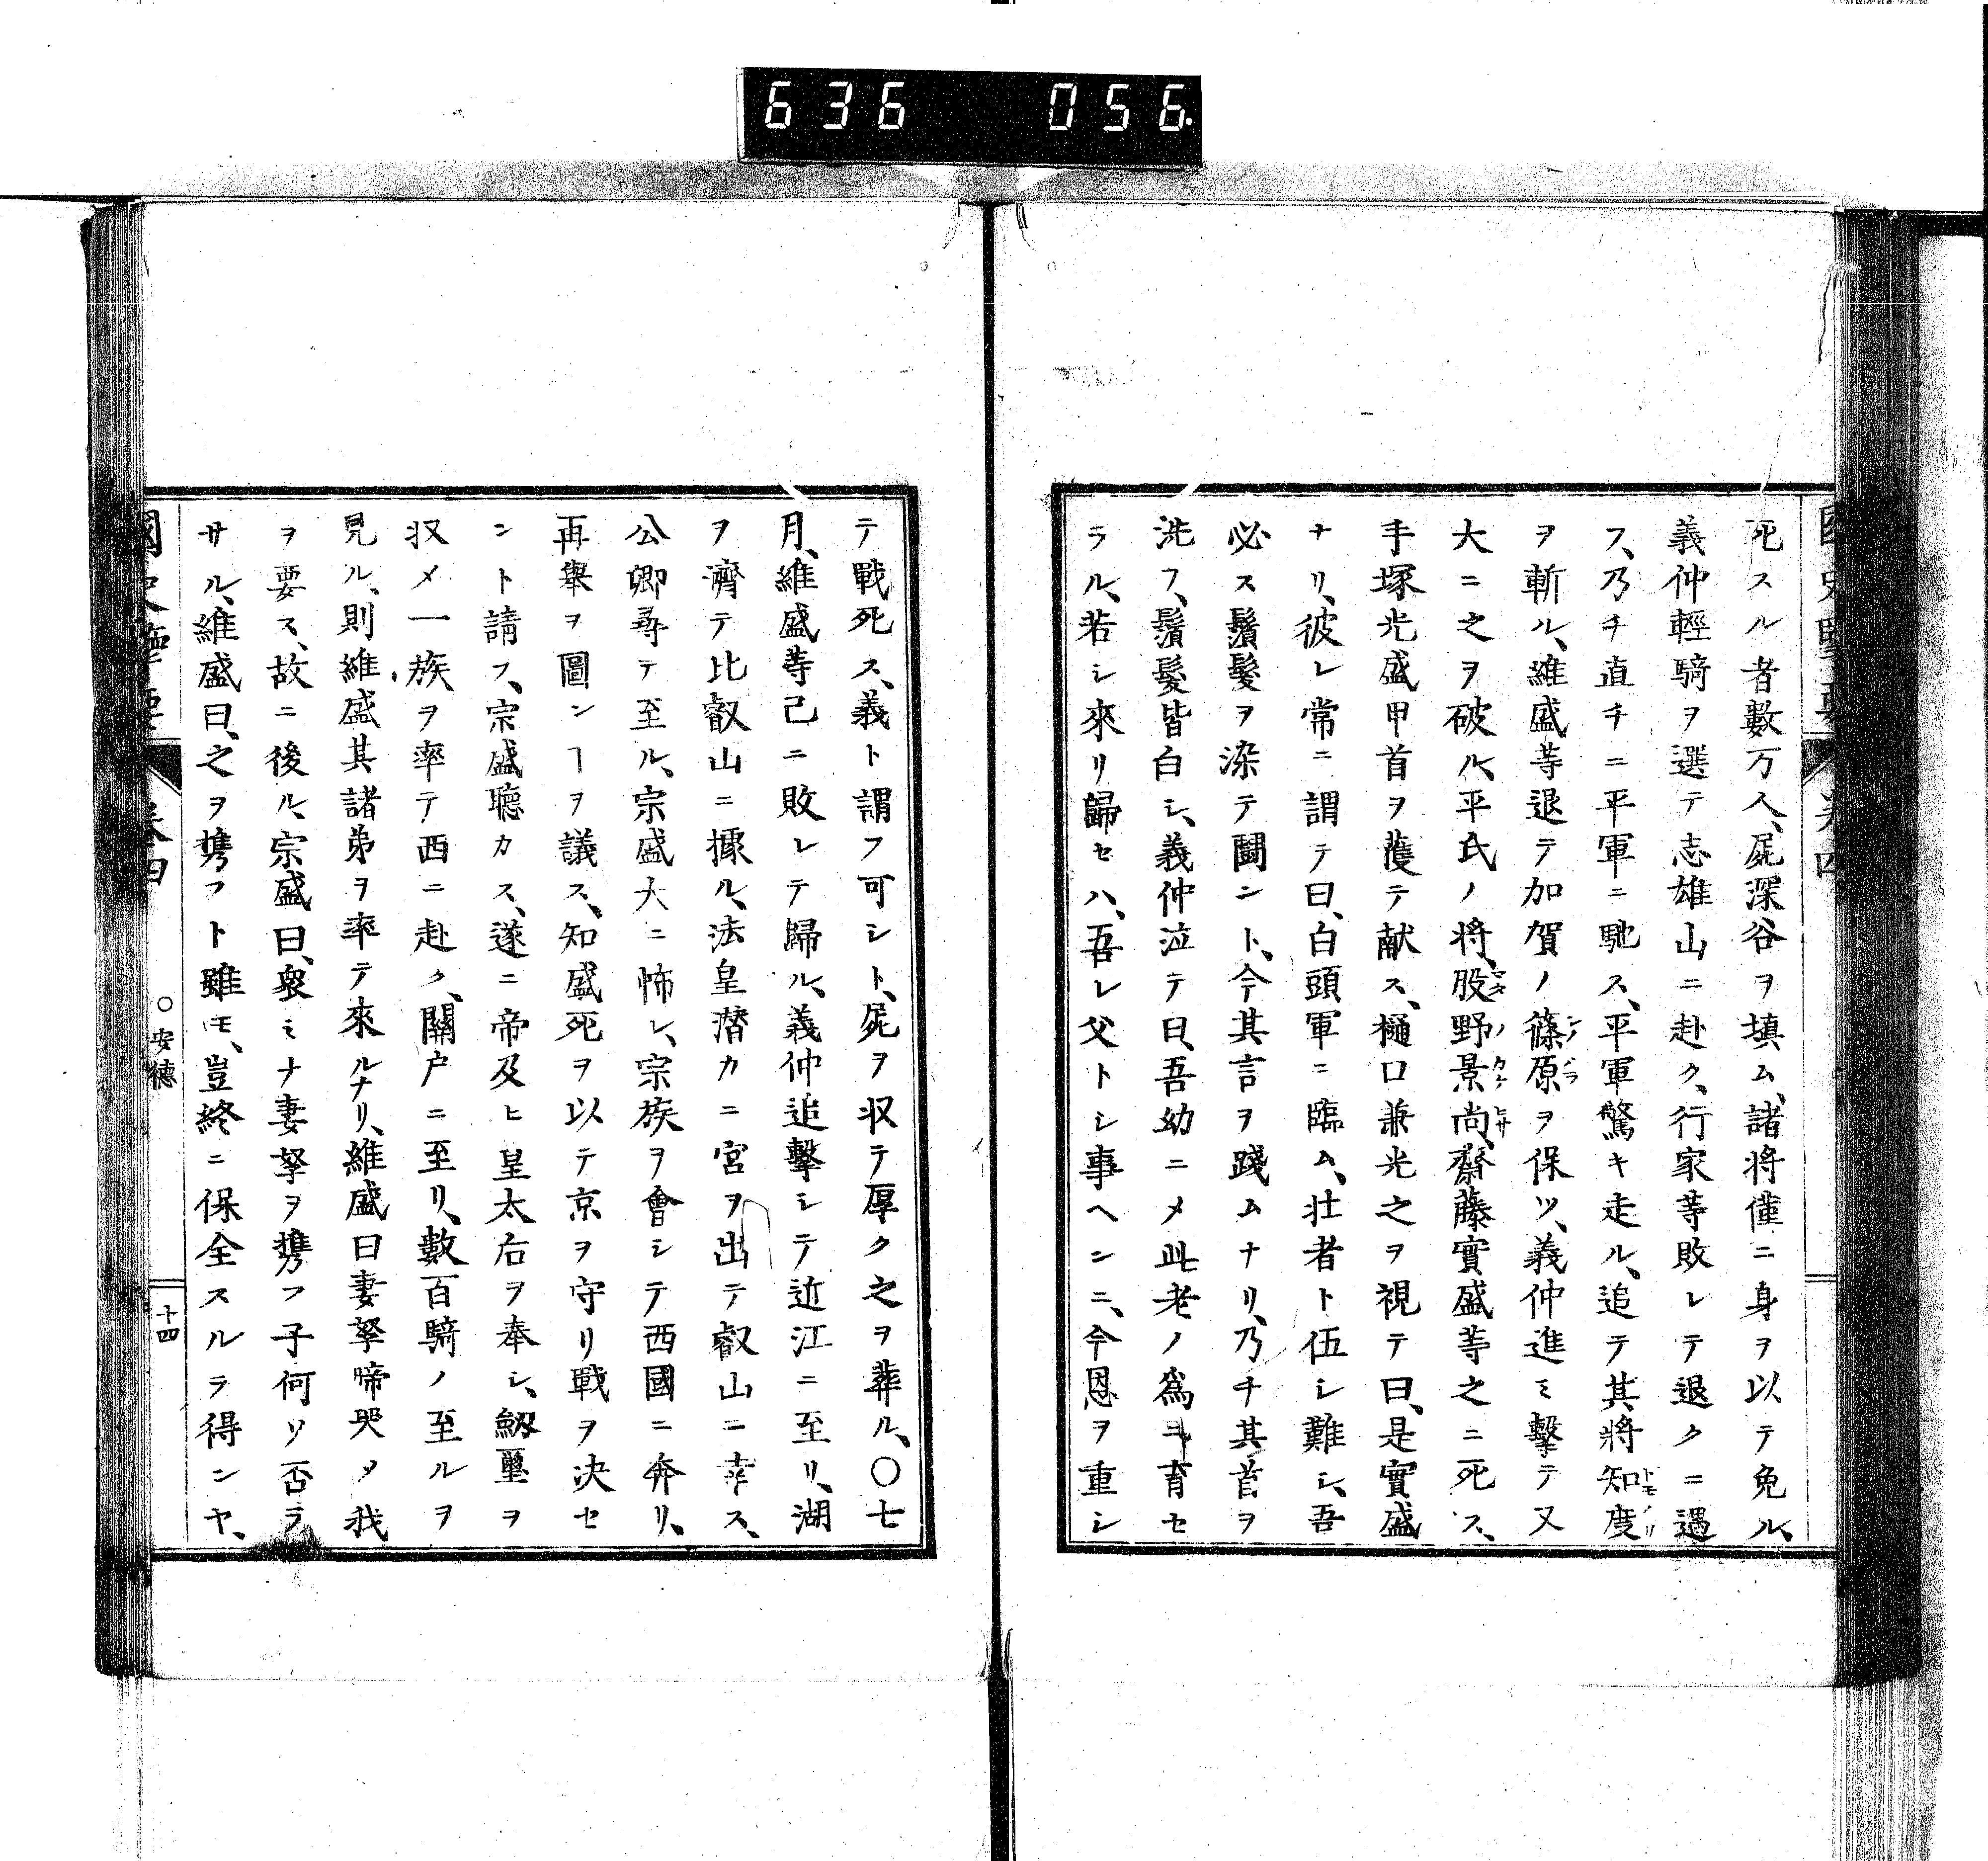 636 056
死スル者數万人、屍深谷ヲ填ム、諸将僅ニ身ヲ以テ免ル、
義仲輕騎ヲ選テ志雄山ニ赴ク、行家等敗レテ退クニ遇
フ、乃チ直チニ平軍ニ馳ス、平軍驚キ走ル、追テ其將知度
ヲ斬ル、維盛等退テ加賀ノ篠原ヲ保ツ、義仲進ミ擊テ又
大ニ之ヲ破ル、平氏ノ将、股野景尚、齋藤實盛等之ニ死ス、
手塚光盛甲首ヲ獲テ献ス、樋口兼光之ヲ視テ曰、是實盛
ナリ、彼レ常ニ謂テ曰、白頭軍ニ臨ム、壮者ト伍シ難シ、吾
必ス鬚髮ヲ染テ鬪ント、今其言ヲ踐ムナリ、乃チ其首ヲ
洗フ、鬚髮皆白シ、義仲泣テ曰、吾幼ニメ此老ノ爲ヨリ育セ
ラル、若シ來リ歸セハ、吾レ父トシ事ヘンニ、今恩ヲ重シ
テ戰死ス、義ト謂フ可シト、屍ヲ収テ厚ク之ヲ葬ル、〇七
月、維盛等已ニ敗レテ歸ル、義仲追擊シテ近江ニ至リ、湖
ヲ濟テ比叡山ニ據ル、法皇潜カニ宮ヲ出テ叡山ニ幸ス、
公卿尋テ至ル、宗盛大ニ怖レ、宗族ヲ會シテ西國ニ奔リ、
再擧ヲ圖ンヿヲ議ス、知盛死ヲ以テ京ヲ守リ戰ヲ決セ
ント請フ、宗盛聽カス、遂ニ帝及ヒ皇太后ヲ奉シ、劔璽ヲ
収メ一族ヲ率テ西ニ赴ク、關戸ニ至リ、數百騎ノ至ルヲ
見ル、則維盛其諸弟ヲ率テ來ルナリ、維盛曰妻孥啼哭メ我
ヲ要ス、故ニ後ル、宗盛曰、衆ミナ妻孥ヲ携フ子何ソ否ラ
サル、維盛曰、之ヲ携フト雖モ、豈終ニ保全スルヲ得ンヤ、
國史擥要 卷四 〇安德 十四